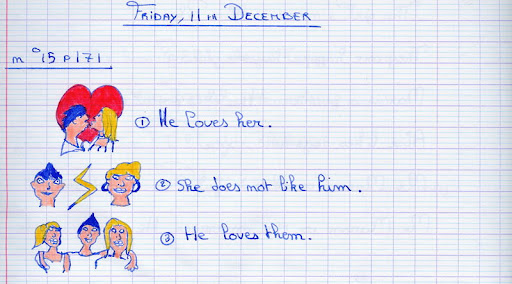 FRIDAY, 11th DECEMBER
n°15 p171
① He loves her.
② She does not like him.
③ He loves them.